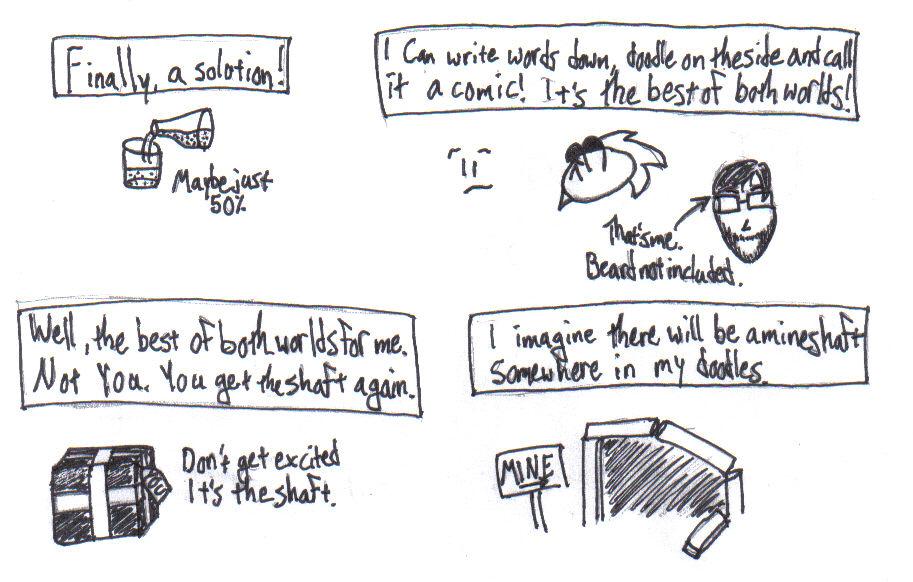 Finally, a solution!
Maybe just
50%
I Can write words down, doodle on the side and call
it a comic! It's the best of both worlds!
That's me.
Beard not included.
Well, the best of both worlds for me.
Not You. You get the shaft again.
Don't get excited
It's the shaft.
I imagine there will be a mineshaft
somewhere in my doodles.
MINE